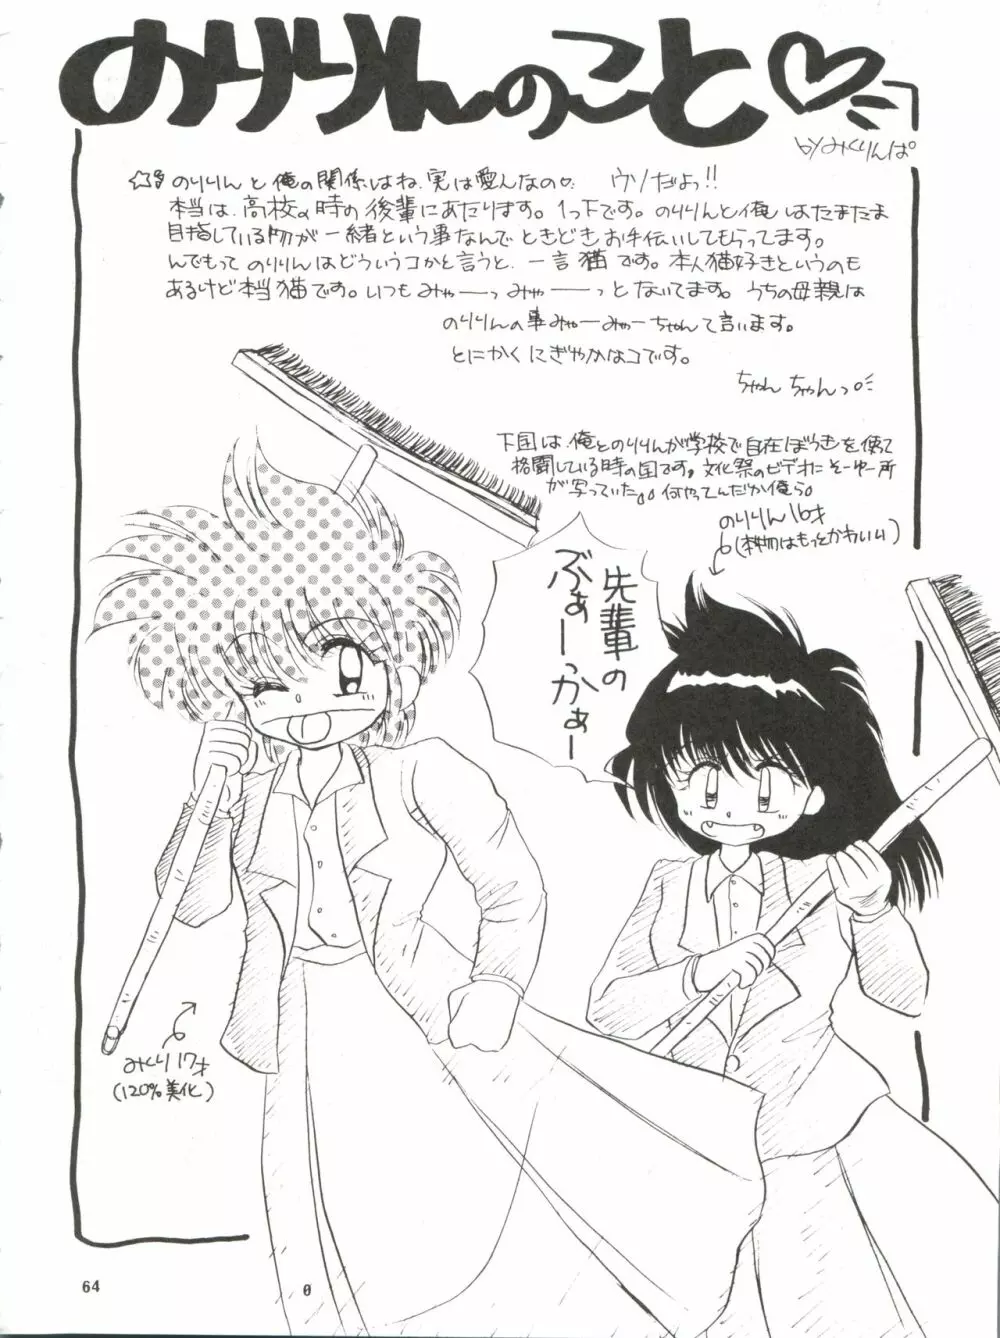 のりりんのこと♡
byみくりんぱ°
☆彡 のりりんと俺の関係はね、実は愛人なの♡ ウソだよっ!!
本当は、高校の時の後輩にあたります。1つ下です。のりりんと俺はたまたま
目指している物が一緒という事なんでときどきお手伝いしてもらってます。
んでもってのりりんはどういうコかと言うと、一言猫です。本人猫好きというのも
あるけど本当猫です。いつもみゃーーっみゃーーっとないてます。うちの母親は
のりりんの事みゃーみゃーちゃんて言います。
とにかくにぎやかなコです。
ちゃんちゃんっ。
下図は、俺とのりりんが学校で自在ぼうきを使って
格闘している時の図です。文化祭のビデオにそーゆー所
が写っていた。。何やってんだか俺ら。
のりりん16才
(本物はもっとかわいい)
先輩の
ぶぁーっかぁー
みくり17才
(120%美化)
64
0